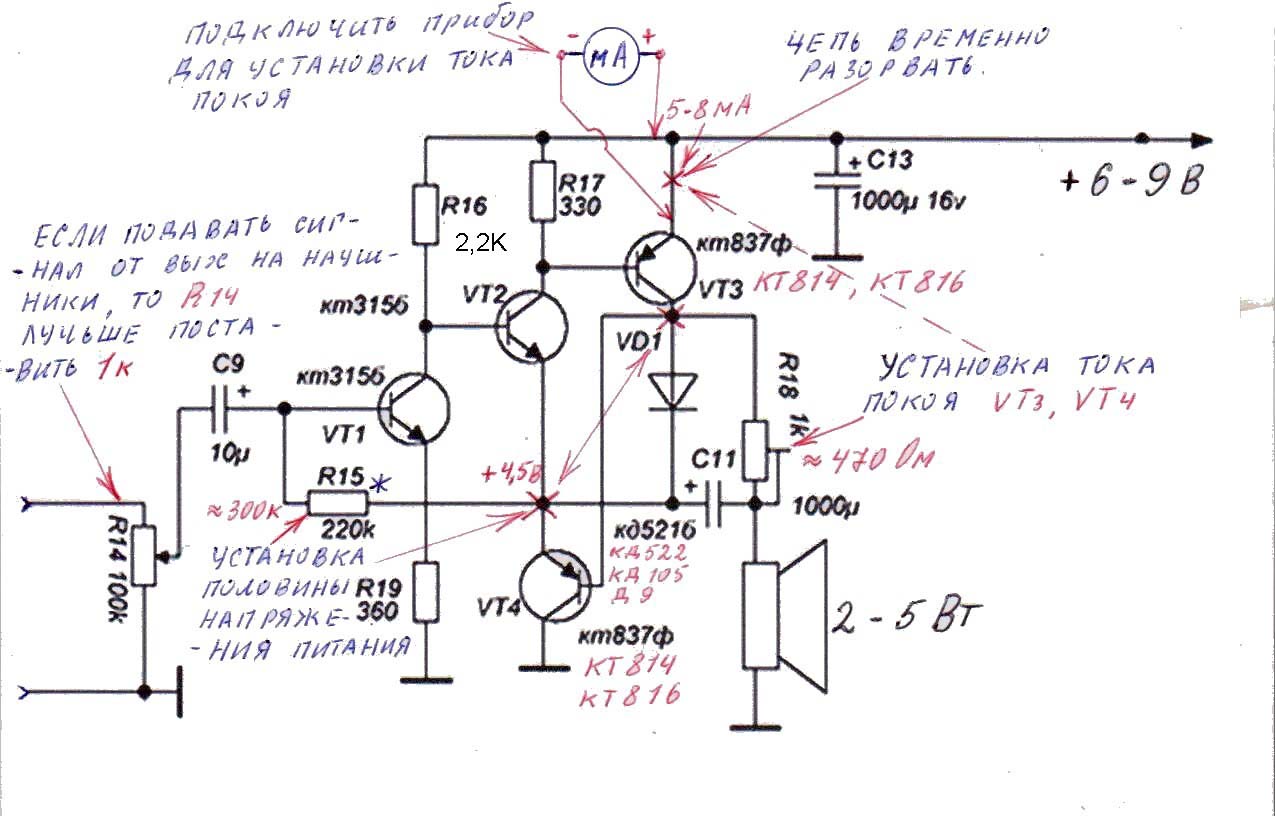 ПОДКЛЮЧИТЬ ПРИБОР
ДЛЯ УСТАНОВКИ ТОКА
ПОКОЯ
- мА +
ЦЕПЬ ВРЕМЕННО
РАЗОРВАТЬ.
5-8мА
+ 6 - 9 В
C13
1000µ 16v
R17
330
R16
2,2K
кт837ф
VT3
КТ814, КТ816
ЕСЛИ ПОДАВАТЬ СИГ-
-НАЛ ОТ ВЫХ НА НАУШ-
НИКИ, ТО R14
ЛУЧЬШЕ ПОСТА-
-ВИТЬ 1к
кт315б
VT2
VD1
C9
+
10µ
кт315б
VT1
R18 1k
УСТАНОВКА ТОКА
ПОКОЯ VT3, VT4
≈470 Ом
C11
+
1000µ
+4,5В
R15 *
≈300к
220k
R14 100k
УСТАНОВКА
ПОЛОВИНЫ
НАПРЯЖЕ-
-НИЯ ПИТАНИЯ
R19
360
кд521б
КД522
КД105
Д9
VT4
кт837ф
КТ814
КТ816
2 - 5 Вт